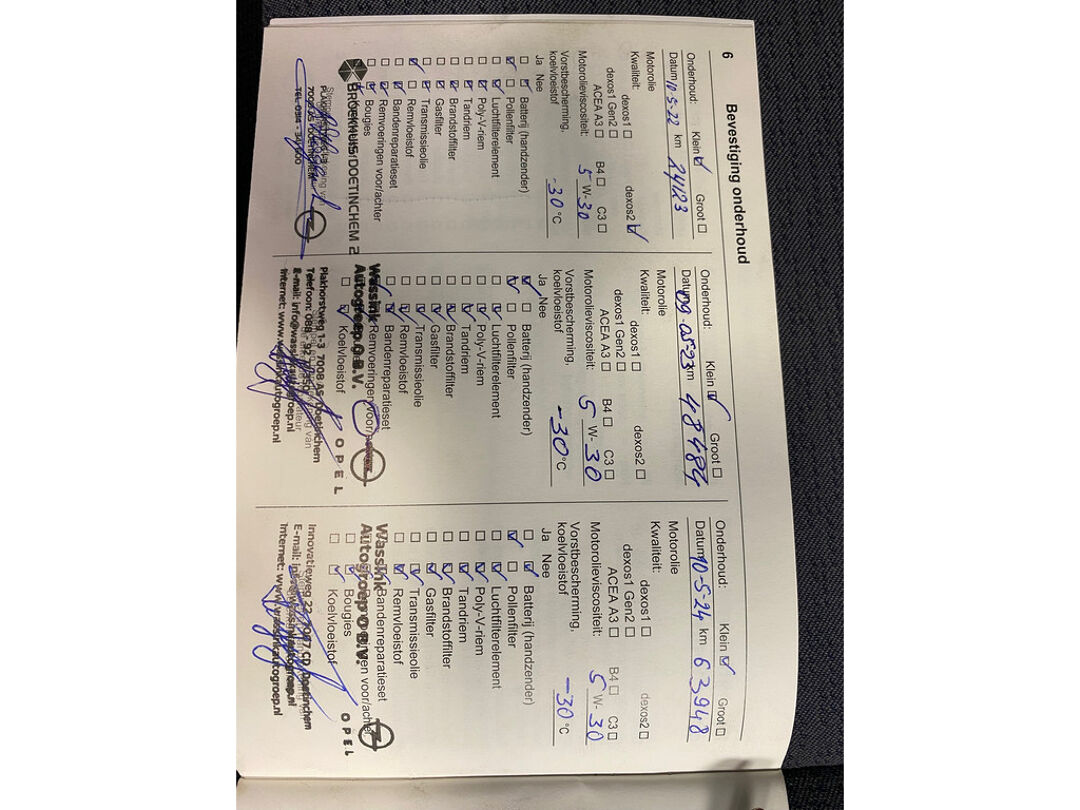 6
Bevestiging onderhoud
Onderhoud: Klein Groot
Datum 10-5-22 km 24123
Motorolie
Kwaliteit: dexos1 dexos2
dexos1 Gen2
ACEA A3 B4 C3
Motorolieviscositeit: 5 W- 30
Vorstbescherming,
koelvloeistof -30 °C
Ja Nee
Batterij (handzender)
Pollenfilter
Luchtfilterelement
Poly-V-riem
Tandriem
Brandstoffilter
Gasfilter
Transmissieolie
Remvloeistof
Bandenreparatieset
Remvoeringen voor/achter
Bougies
BROEKHUIS DOETINCHEM 2
Onderhoud: Klein Groot
Datum 09-05-23 km 48484
Motorolie
Kwaliteit: dexos1 dexos2
dexos1 Gen2
ACEA A3 B4 C3
Motorolieviscositeit: 5 W- 30
Vorstbescherming,
koelvloeistof -30 °C
Ja Nee
Batterij (handzender)
Pollenfilter
Luchtfilterelement
Poly-V-riem
Tandriem
Brandstoffilter
Gasfilter
Transmissieolie
Remvloeistof
Bandenreparatieset
Remvoeringen voor/
Koelvloeistof
Wassink
Autogroep O B.V.
OPEL
Plakhorstweg 1-3 7008 AS Doetinchem
Telefoon: 088
E-mail: info@wassinkautogroep.nl
Internet: www.wassinkautogroep.nl
Onderhoud: Klein Groot
Datum 10-5-24 km 63948
Motorolie
Kwaliteit: dexos1 dexos2
dexos1 Gen2
ACEA A3 B4 C3
Motorolieviscositeit: 5 W- 30
Vorstbescherming,
koelvloeistof -30 °C
Ja Nee
Batterij (handzender)
Pollenfilter
Luchtfilterelement
Poly-V-riem
Tandriem
Brandstoffilter
Gasfilter
Transmissieolie
Remvloeistof
Bandenreparatieset
voor/achter
Bougies
Koelvloeistof
Wassink
Autogroep O B.V.
OPEL
Innovatieweg 22 7007 CD Doetinchem
Internet: www.wassinkautogroep.nl